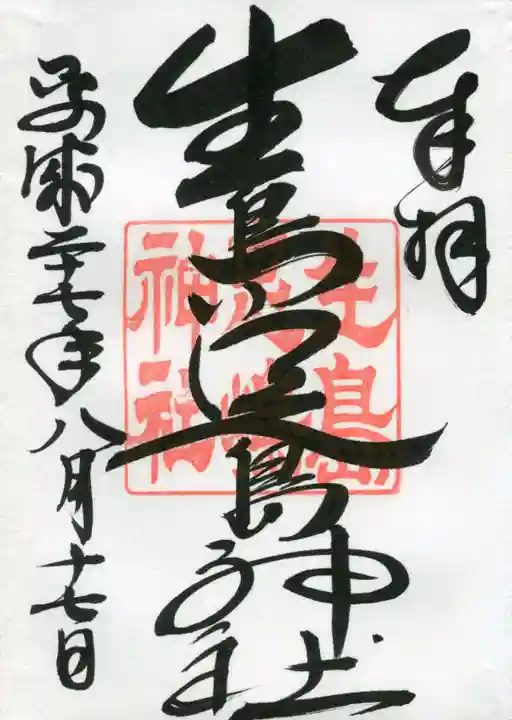 奉拝
生島足島神社
生島
神社
平成二十七年八月十七日